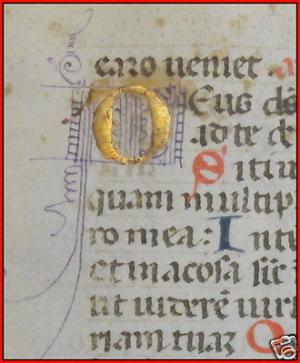 caro veniet. a
Deus ds
ad te d
Sitiu
quam multip
ro mea: Inte
et inaqosa sic i
ut viderē vir
riam tuaz O